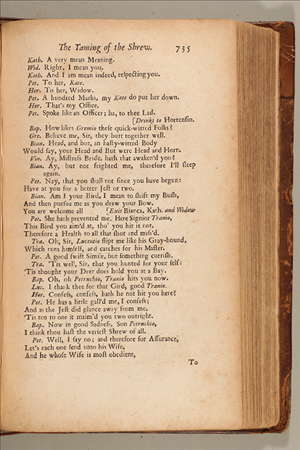 The Taming of the Shrew. 735
Kath. A very mean Meaning.
Wid. Right, I mean you.
Kath. And I am mean indeed, respecting you.
Pet. To her, Kate.
Hor. To her, Widow.
Pet. A hundred Marks, my Kate do put her down.
Hor. That's my Office.
Pet. Spoke like an Officer; ha, to thee Lad.
[Drinks to Hortensio.
Bap. How likes Gremio these quick-witted Folks?
Gre. Believe me, Sir, they butt together well.
Bian. Head, and but, an hasty-witted Body
Would say, your Head and But were Head and Horn.
Vin. Ay, Mistress Bride, hath that awaken'd you?
Bian. Ay, but not frighted me, therefore I'll sleep
again.
Pet. Nay, that you shall not since you have begun:
Have at you for a better Jest or two.
Bian. Am I your Bird, I mean to shift my Bush,
And then pursue me as you draw your Bow.
You are welcome all [Exit Bianca, Kath. and Widow
Pet. She hath prevented me. Here Signior Tranio,
This Bird you aim'd at, tho' you hit it not,
Therefore a Health to all that shot and miss'd.
Tra. Oh, Sir, Lucentio slipt me like his Gray-hound,
Which runs himself, and catches for his Master.
Pet. A good swift Simile, but something currish.
Tra. 'Tis well, Sir, that you hunted for your self:
'Tis thought your Deer does hold you at a Bay.
Bap. Oh, oh Petruchio, Tranio hits you now.
Luc. I thank thee for that Gird, good Tranio.
Hor. Confess, confess, hath he not hit you here?
Pet. He has a little gall'd me, I confess;
And as the Jest did glance away from me,
'Tis ten to one it maim'd you two outright.
Bap. Now in good Sadness, Son Petruchio,
I think thou hast the veriest Shrew of all.
Pet. Well, I say no; and therefore for Assurance,
Let's each one send unto his Wife,
And he whose Wife is most obedient,
To